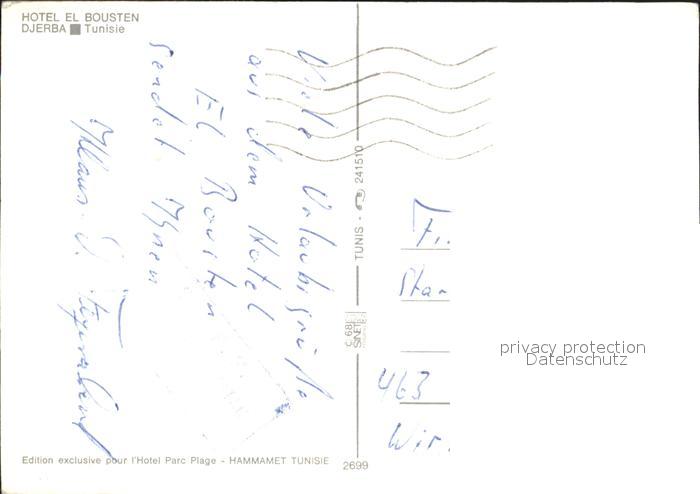 HOTEL EL BOUSTEN
DJERBA ■ Tunisie
Viele Urlaubsgrüße
aus dem Hotel
El Bousten
sendet Ihnen
Klaus
TUNIS - 241510
Fr.
Sta-
463
Wir.
privacy protection
Datenschutz
Edition exclusive pour l'Hotel Parc Plage - HAMMAMET TUNISIE
2699